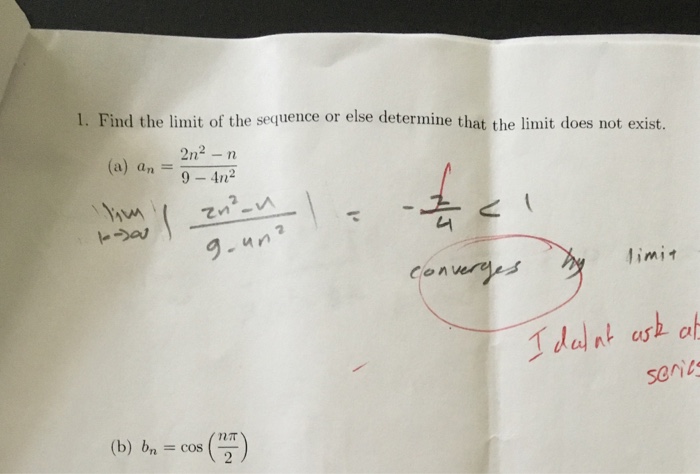 1. Find the limit of the sequence or else determine that the limit does not exist.
(a) aₙ = (2n² − n)/(9 − 4n²)
lim n→∞ | (2n²-n)/(9-4n²) | = - 2/4 < 1
converges by limit
I didn't ask ab
series
(b) bₙ = cos (nπ/2)